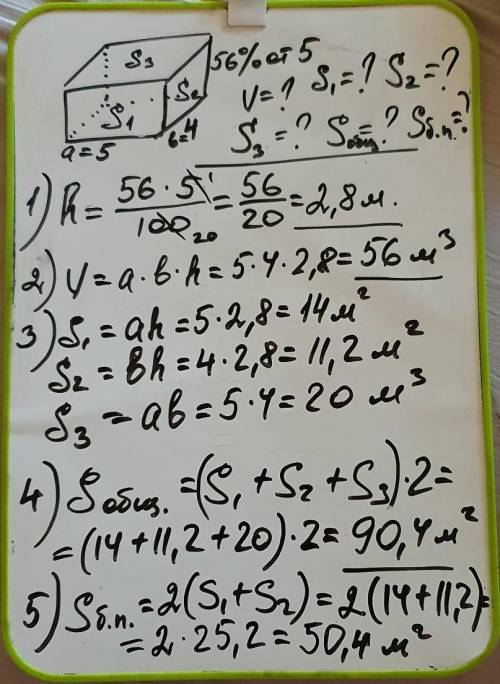 S₃ 56% от 5
S₂ V=? S₁=? S₂=?
S₁ S₃=? Sобщ=? Sб.п.=?
a=5 b=4
1) h = 56·5/100 = 56/20 = 2,8 м.
20
2) V = a·b·h = 5·4·2,8 = 56 м³
3) S₁ = ah = 5·2,8 = 14 м²
S₂ = bh = 4·2,8 = 11,2 м²
S₃ = ab = 5·4 = 20 м³
4) Sобщ. = (S₁ + S₂ + S₃)·2 =
= (14 + 11,2 + 20)·2 = 90,4 м²
5) Sб.п. = 2(S₁+S₂) = 2(14+11,2) =
= 2·25,2 = 50,4 м²